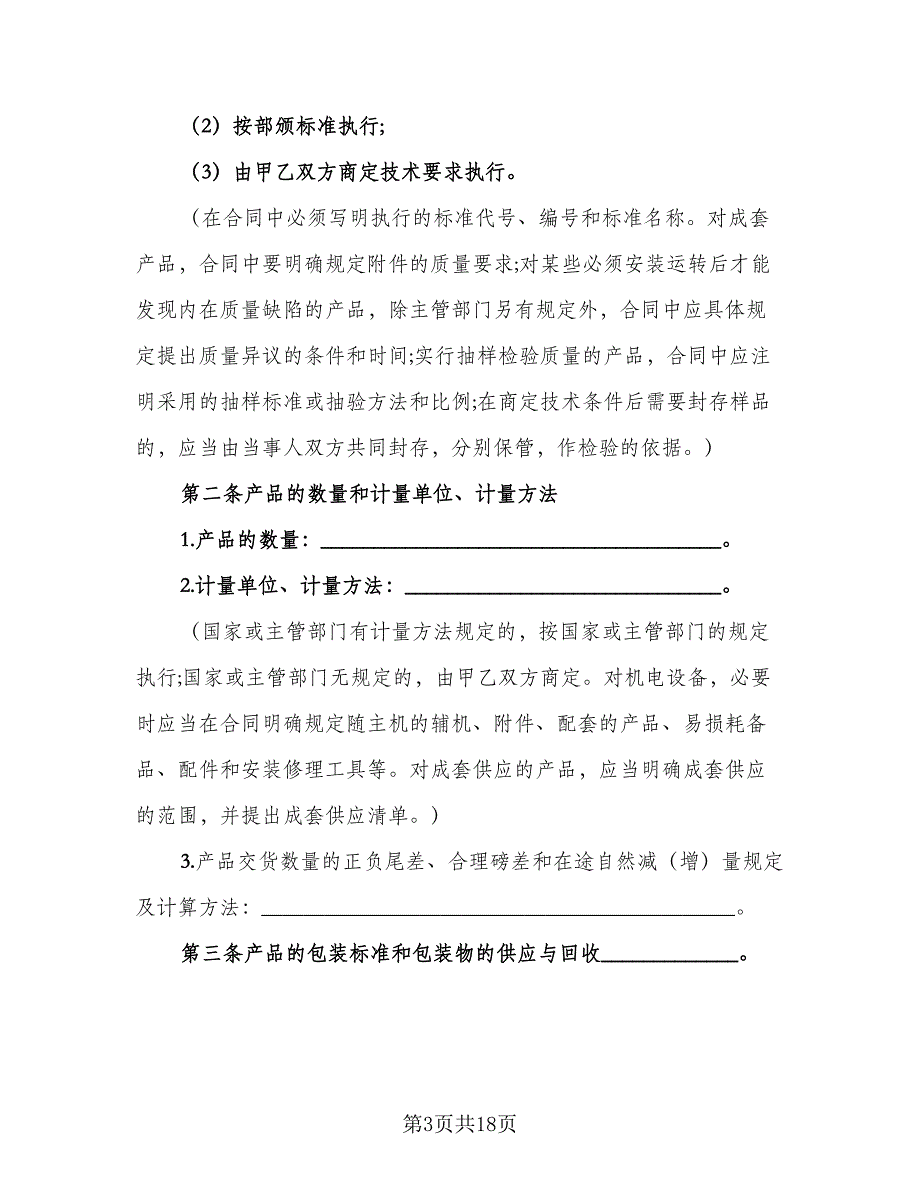 （2）按部颁标准执行;
（3）由甲乙双方商定技术要求执行。
（在合同中必须写明执行的标准代号、编号和标准名称。对成套
产品，合同中要明确规定附件的质量要求;对某些必须安装运转后才能
发现内在质量缺陷的产品，除主管部门另有规定外，合同中应具体规
定提出质量异议的条件和时间;实行抽样检验质量的产品，合同中应注
明采用的抽样标准或抽验方法和比例;在商定技术条件后需要封存样品
的，应当由当事人双方共同封存，分别保管，作检验的依据。）
第二条产品的数量和计量单位、计量方法
1.产品的数量：______________________________________。
2.计量单位、计量方法：______________________________。
（国家或主管部门有计量方法规定的，按国家或主管部门的规定
执行;国家或主管部门无规定的，由甲乙双方商定。对机电设备，必要
时应当在合同明确规定随主机的辅机、附件、配套的产品、易损耗备
品、配件和安装修理工具等。对成套供应的产品，应当明确成套供应
的范围，并提出成套供应清单。）
3.产品交货数量的正负尾差、合理磅差和在途自然减（增）量规定
及计算方法：_____________________________________________。
第三条产品的包装标准和包装物的供应与回收_____________。
第3页共18页